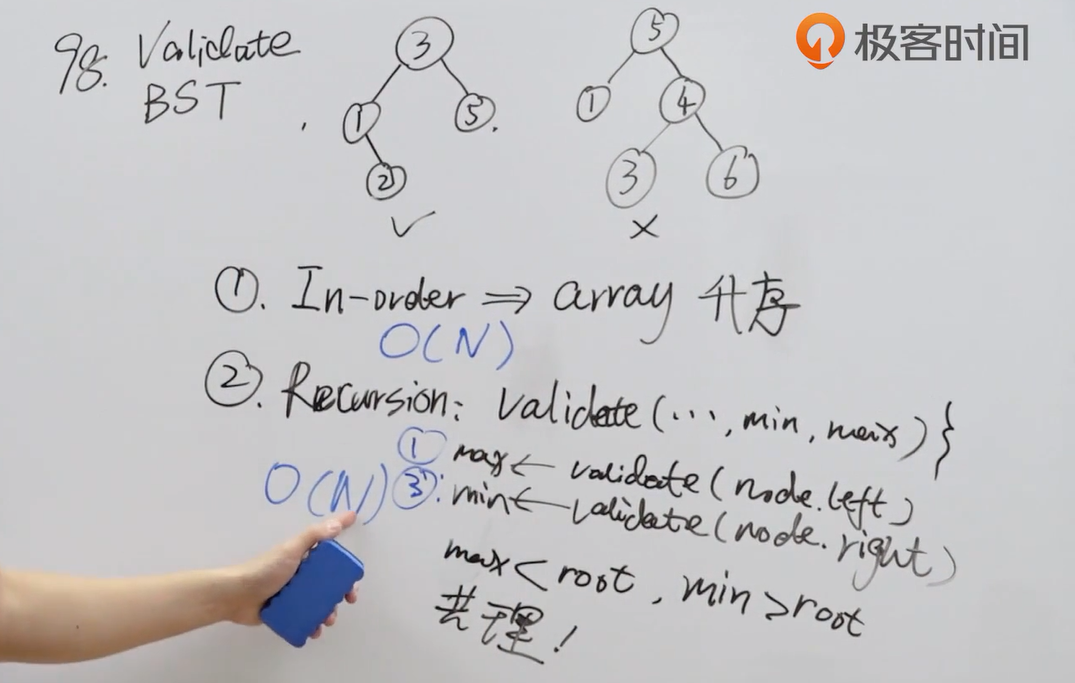 极客时间
98. Validate
BST
3
1
5
2
✓
5
1
4
3
6
×
①. In-order ⇒ array 升序
O(N)
②. Recursion: validate(…, min, max) }
① max ← validate(node.left)
O(N) ③: min ← validate(node.right)
max < root, min > root
!